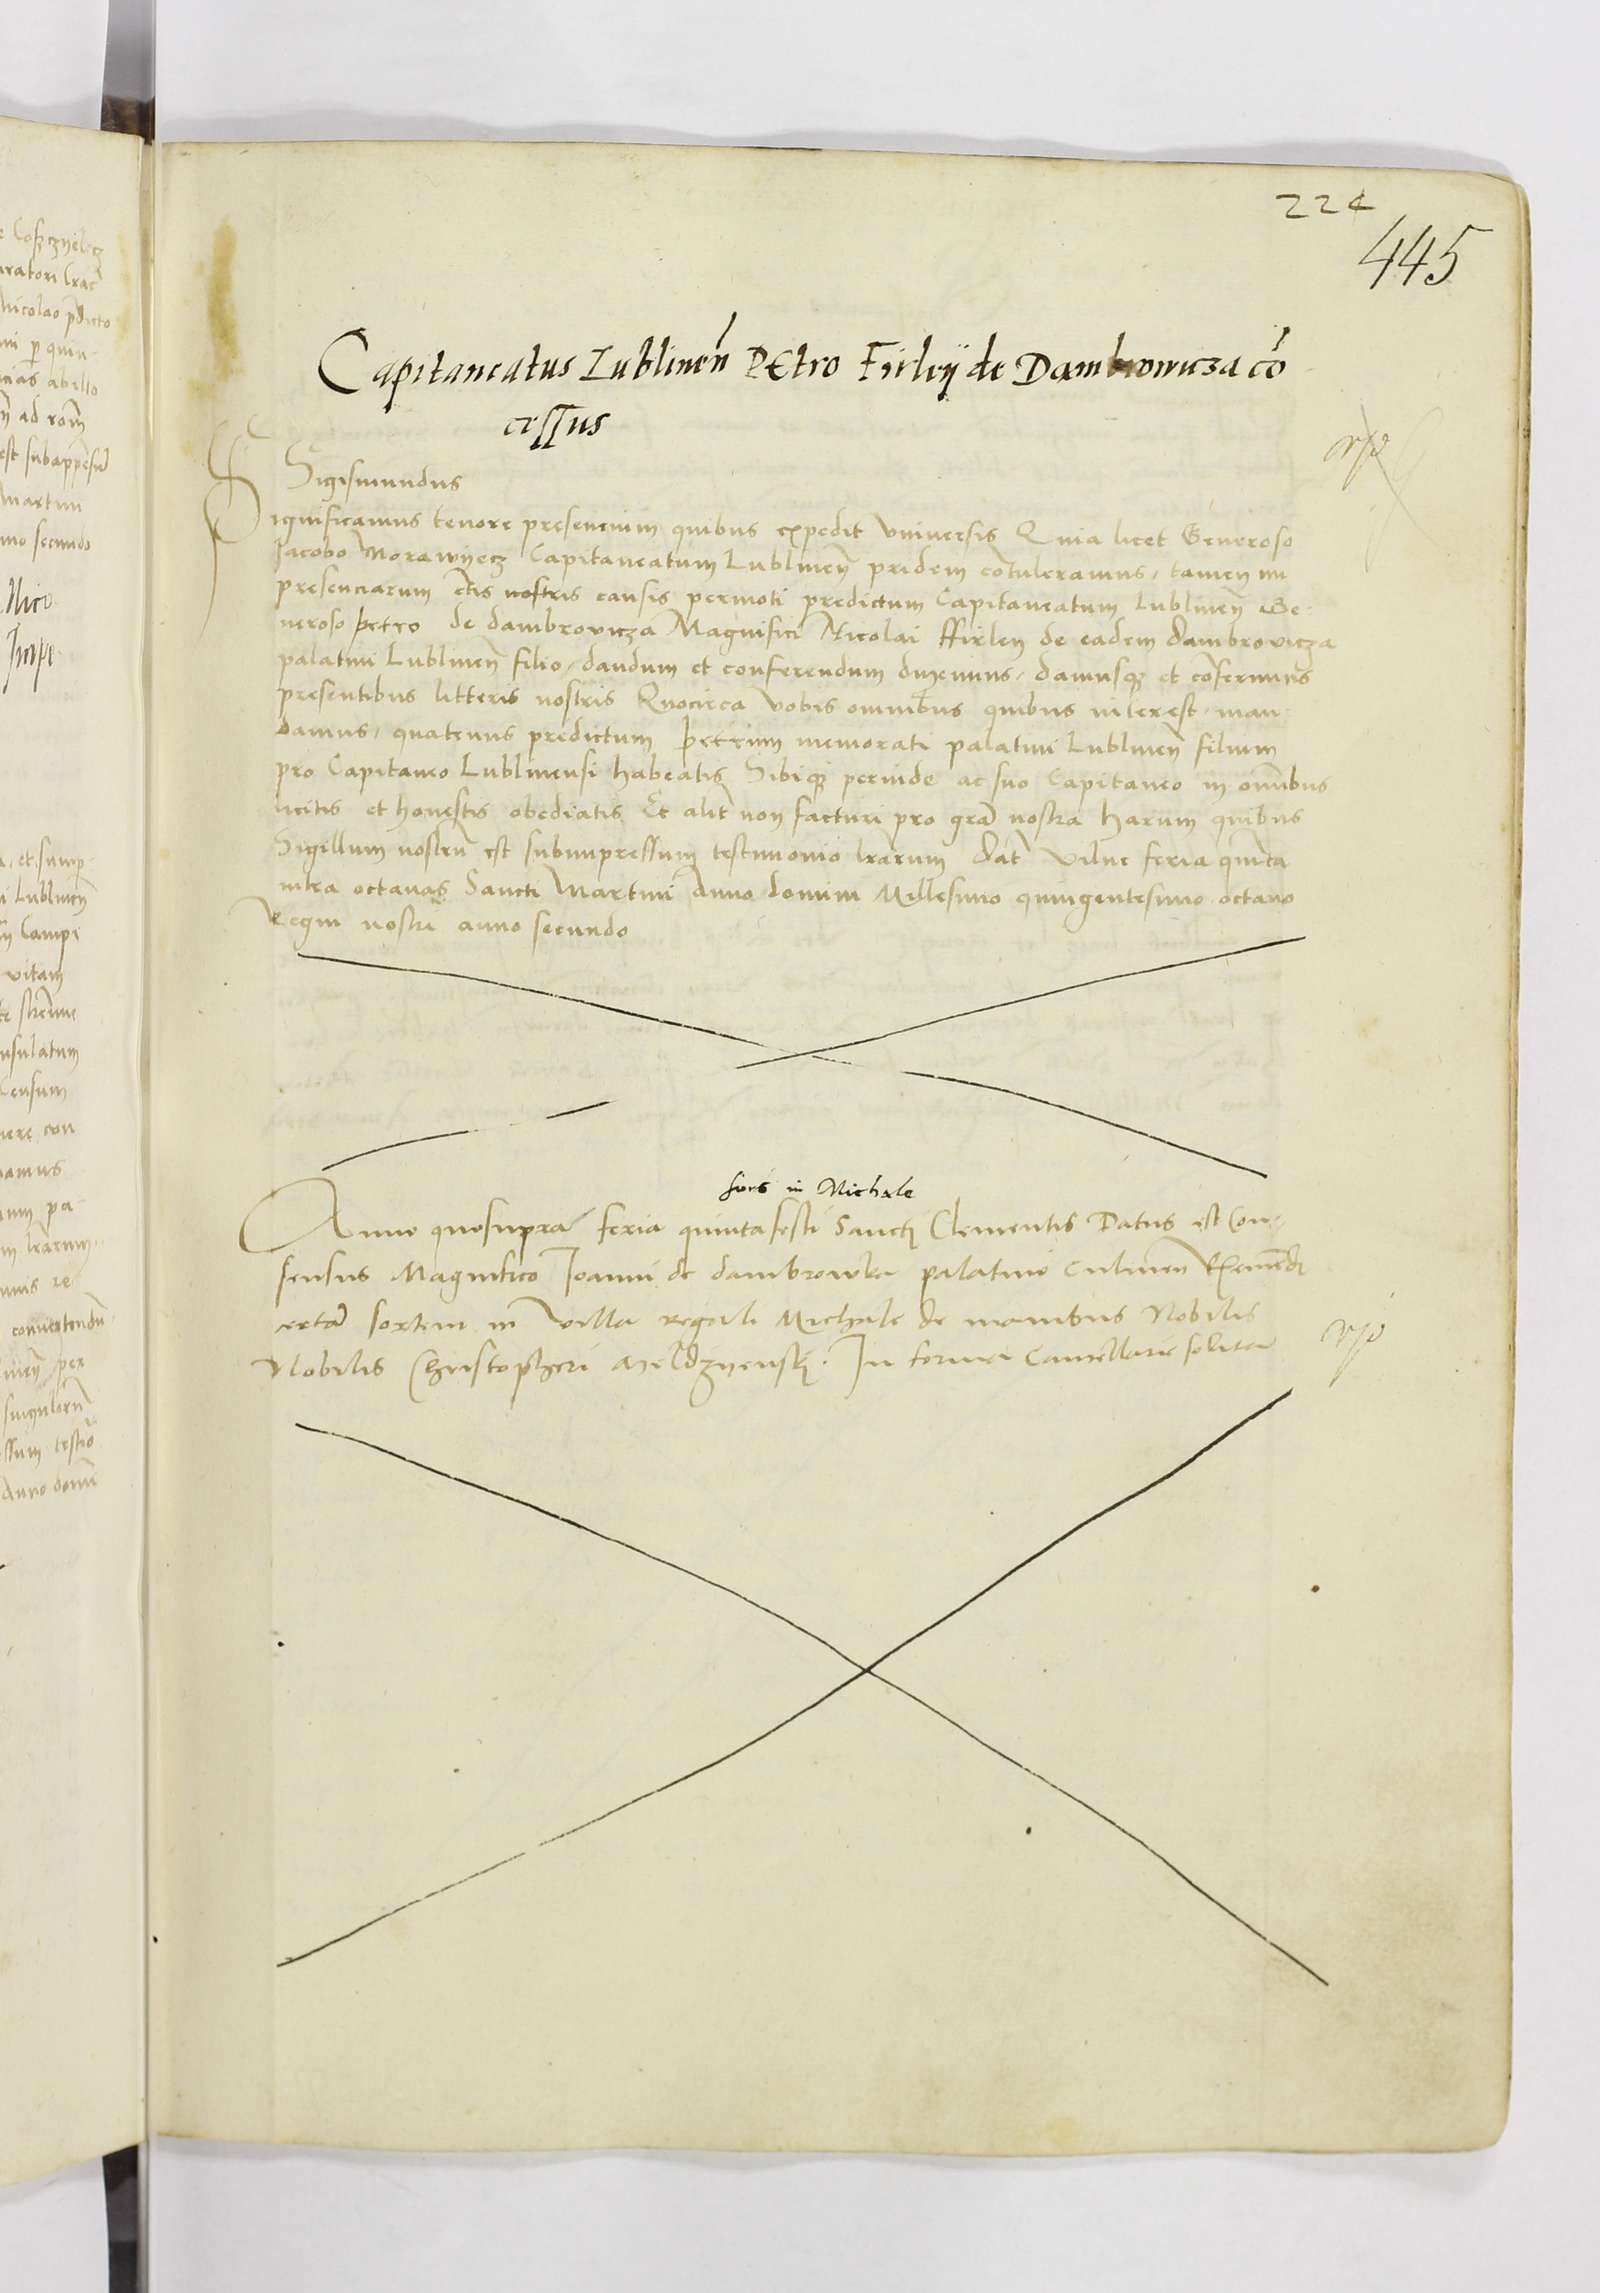 224
445
Capitaneatus Lublinen̄ PEtro Firleij de Dambrowicza cō
cessus
Sigismundus
Significamus tenore presencium quibus expedit Vniuersis Quia licet Generoso
Jacobo Morawyecz Capitaneatum Lublinen̄ pridem contuleramus, tamen in
presenciarum c̄tis nostris causis permoti predictum Capitaneatum Lublinen̄ Ge-
neroso petro de dambrovicza Magnifici Nicolai ffirley de eadem dambrovicza
palatini Lublinen̄ filio, dandum et conferendum duximus, damusq3 et cōferimus
presentibus litteris nostris Quocirca vobis omnibus quibus interest, man-
damus, quatenus predictum petrum memorati palatini Lublinen̄ filium
pro Capitaneo Lublinensi habeatis Sibiq3 perinde ac suo Capitaneo in omībus
licitis et honestis obediatis Et alit̄ non facturi pro grā nostra harum quibus
Sigillum nostrū est subimpressum testimonio lrarum Dat̄ Vilne feria quinta
infra octauas Sancti Martini Anno domini Millesimo quingentesimo octauo
Regni nostri anno secundo
sors in Michale
Anno quosupra feria quinta festi Sancti Clementis Datus est Con-
sensus Magnifico Joanni de dambrowka palatino Culmen̄ Eximendi
certā sortem in villa regali Michale de manibus Nobilis
Nobilis Christopheri Meldzyensky. In forma Cancellarie solita